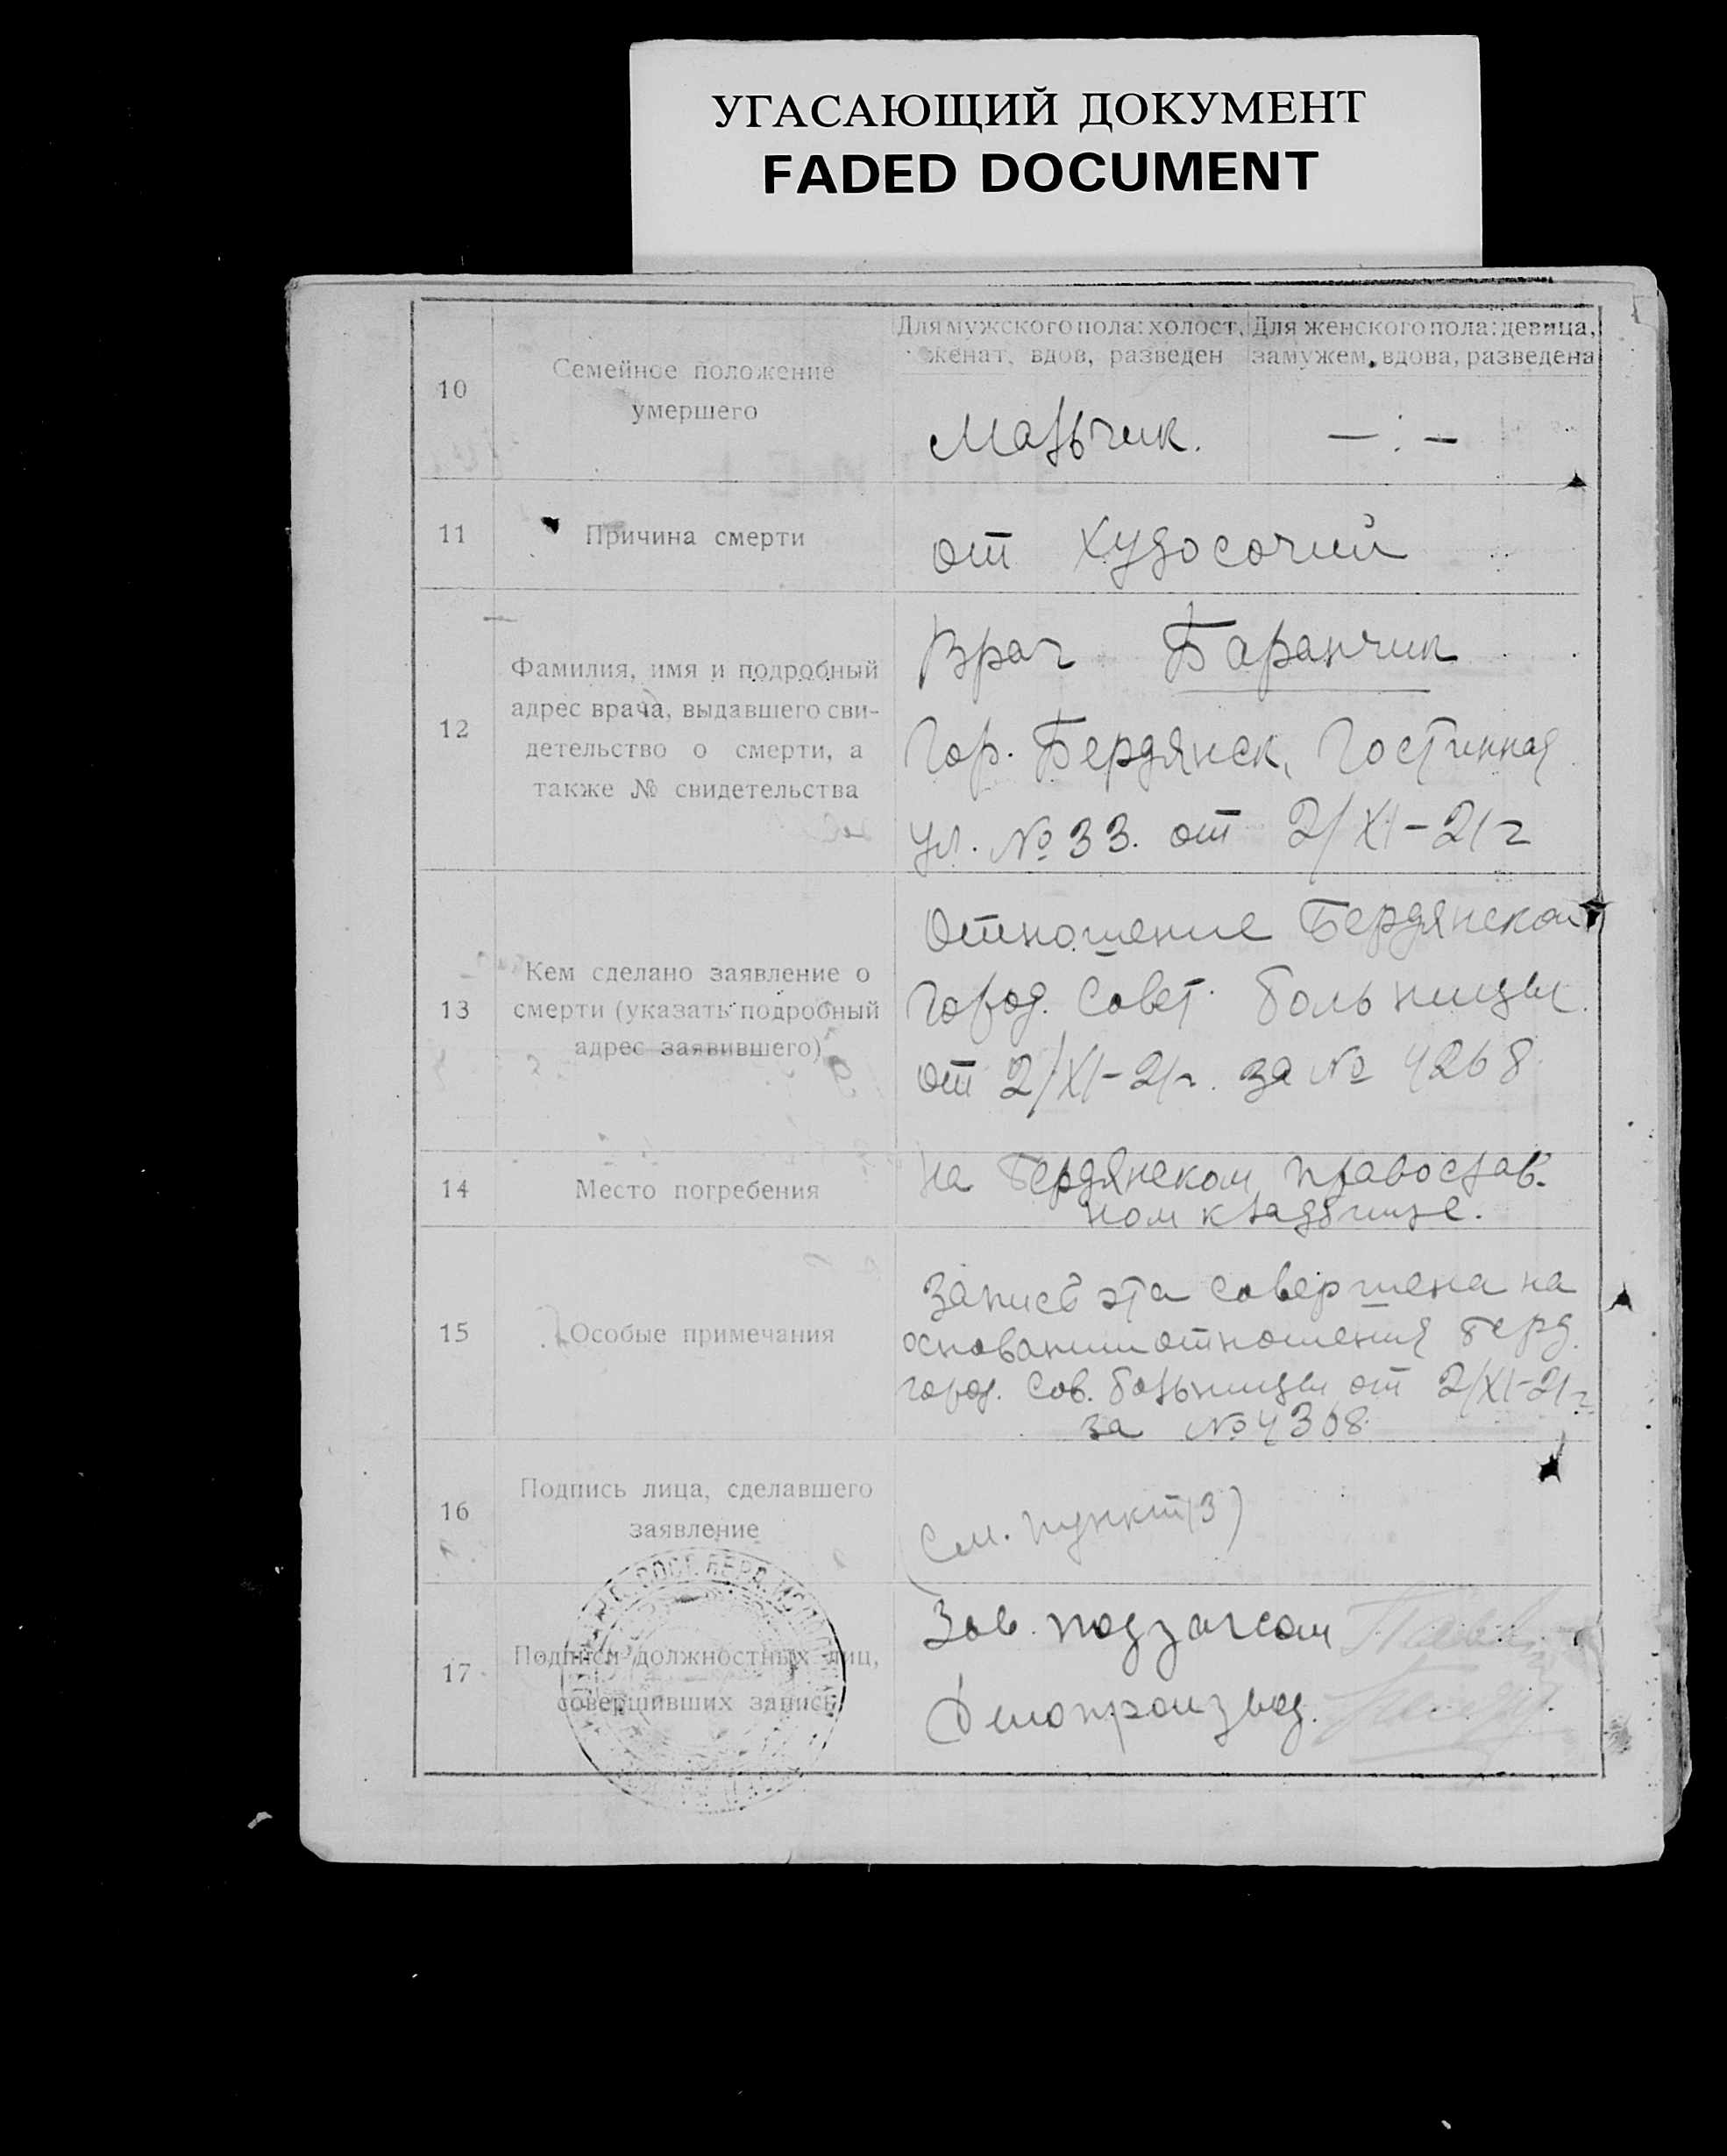 УГАСАЮЩИЙ ДОКУМЕНТ
FADED DOCUMENT
10
Семейное положение
умершего
Для мужского пола: холост,
женат, вдов, разведен
Для женского пола: девица,
замужем, вдова, разведена
Мальчик.
— : —
11
Причина смерти
от худосочий
12
Фамилия, имя и подробный
адрес врача, выдавшего сви-
детельство о смерти, а
также № свидетельства
Врач Баранчик
Гор. Бердянск, Гостинная
ул. № 33. от 2/XI-21 г
13
Кем сделано заявление о
смерти (указать подробный
адрес заявившего)
Отношение Бердянской
Город. Совет. больницы
от 2/XI-21 г. за № 4268
14
Место погребения
на Бердянском православ-
ном кладбище.
15
Особые примечания
Запись эта совершена на
основании отношения Берд.
город. Сов. больницы от 2/XI-21 г.
за № 4308
16
Подпись лица, сделавшего
заявление
См. пункт 13)
17
Подписи должностных лиц,
совершивших запись
Зав. подзагсом
Делопроизвод.